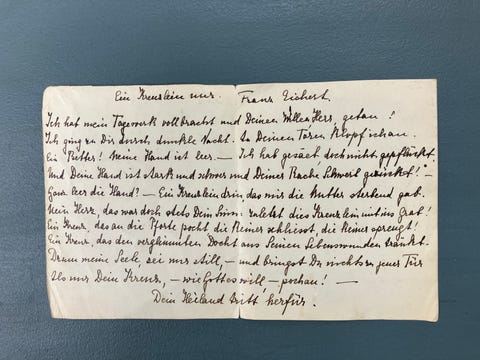 Ein Kreuzlein nur. Franz Eichert.
Ich hab mein Tagewerk vollbracht und Deinen Willen Herr, getan!
Ich ging zu Dir durch dunkle Nacht. An Deinen Toren klopf ich an.
Ein Ritter! Meine Hand ist leer. — Ich hab gesäet, doch nicht gepflückt.
Und Deine Hand ist stark und schwer und Deiner Rache Schwert gezückt! —
Ganz leer die Hand? — Ein Kreuzlein drin, das mir die Mutter sterbend gab.
Mein Herz, das war doch stets Dein Sinn: Zuletzt dies Kreuzlein mit ins Grab!
Ein Kreuz, das an die Pforte pocht die Keiner schliesst, die Keiner sprengt!
Ein Kreuz, das den verglimmten Docht aus Seinen Lebenswunden tränkt.
Drum meine Seele sei mir still, — und bringst Du nichts zu jener Tür
Als nur Dein Kreuz, — wie Gott es will, — pochan! —
Dein Heiland tritt herfür.